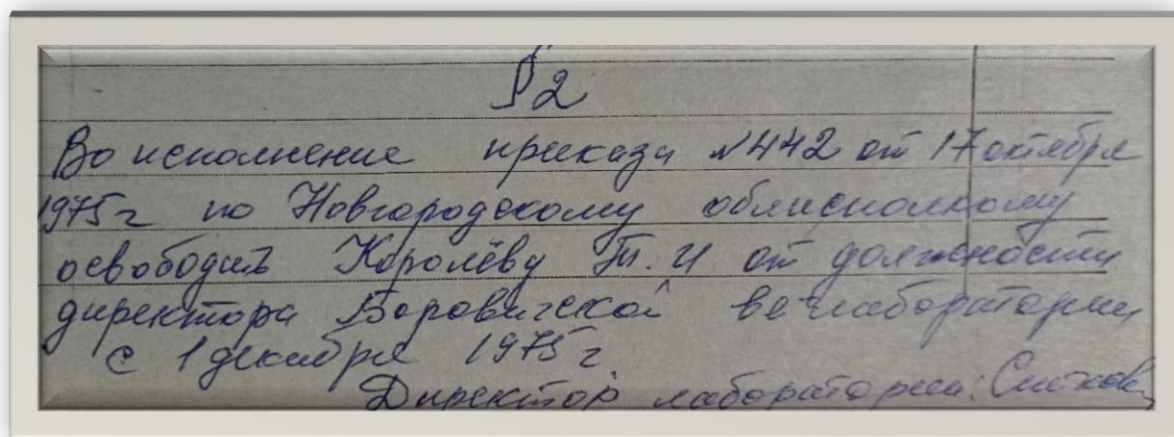 § 2
Во исполнение приказа №442 от 17 октября
1975г по Новгородскому облисполкому
освободить Королёву Т. И от должности
директора Боровичской ветлаборатории
с 1 декабря 1975 г
Директор лаборатории: